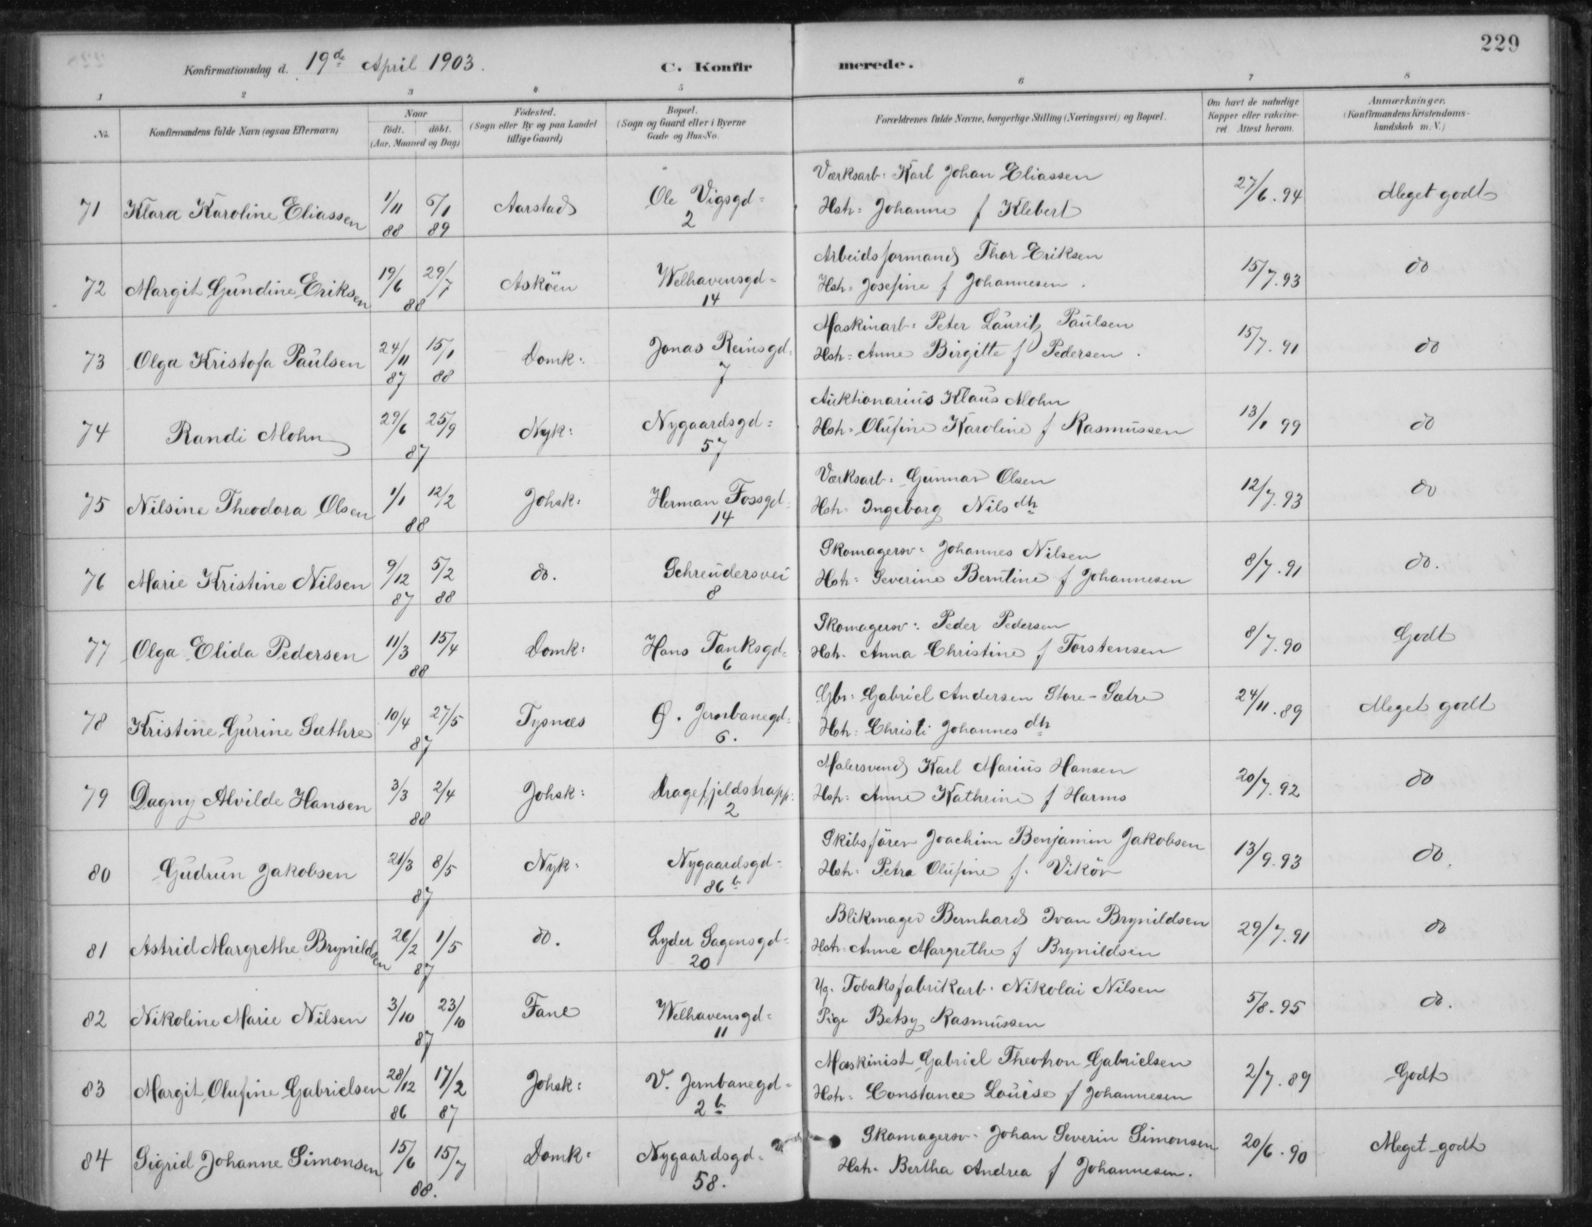 229
Konfirmationsdag d. 19de April 1903. C. Konfirmerede.
1 2 3 4 5 6 7 8
No. Konfirmandens fulde Navn (ogsaa Efternavn) Naar født. døbt. (Aar, Maaned og Dag) Fødested. (Sogn eller By og paa Landet tillige Gaard) Bopæl. (Sogn og Gaard eller i Byerne Gade og Hus-No. Forældrenes fulde Navne, borgerlige Stilling (Næringsvei) og Bopæl. Om havt de naturlige Kopper eller vaccineret. Attest herom. Anmærkninger. (Konfirmandens Kristendomskundskab m. V.)
71 Klara Karoline Eliassen 1/11 88 6/1 89 Aarstad Ole Vigsgd: 2 Værksarb: Karl Johan Eliassen
Hstr: Johanne f Klebert 27/6.94 Meget godt
72 Margit Gundine Eriksen 19/6 29/7 88 Asköen Welhavensgd: 14 Arbeidsformand Thor Eriksen
Hstr: Josefine f Johannesen. 15/7.93 do
73 Olga Kristofa Paulsen 24/11 87 15/1 88 Domk: Jonas Reinsgd. 7 Maskinarb: Peter Lauritz Paulsen
Hstr: Anne Birgitte f Pedersen. 15/7.91 do
74 Randi Mohn 29/6 25/9 87 Nyk: Nygaardsgd: 57 Auktionarius Klaus Mohn
Hstr: Olufine Karoline f Rasmussen 13/1 99 do
75 Nilsine Theodora Olsen 1/1 12/2 88 Johsk: Herman Fossgd: 14 Værksarb: Gunnar Olsen
Hstr. Ingeborg Nilsdtr 12/7.93 do
76 Marie Kristine Nilsen 9/12 87 5/2 88 do. Schreudersvei 8 Skomagersv: Johannes Nilsen
Hstr: Severine Berntine f Johannesen 8/7.91 do.
77 Olga Elida Pedersen 11/3 15/4 88 Domk: Hans Tanksgd: 6 Skomagersv: Peder Pedersen
Hstr. Anna Christine f Torstensen 8/7.90 Godt
78 Kristine Gurine Sæthre 10/4 27/5 87 Tysnæs Ø. Jernbanegd: 6. Gbr: Gabriel Andersen Store-Sætre
Hstr: Christi Johannesdtr 24/11.89 Meget godt
79 Dagny Alvilde Hansen 3/3 2/4 88 Johsk: Dragefjeldstrapp: 2 Malersvend Karl Marius Hansen
Hstr: Anne Kathrine f Harms 20/7.92 do
80 Gudrun Jakobsen 21/3 8/5 87 Nyk: Nygaardsgd: 86b Skibsförer Joachim Benjamin Jakobsen
Hstr: Petra Olufine f. Vikör 13/9.93 do.
81 Astrid Margrethe Brynildsen 20/2 1/5 87 do. Lyder Sagensgd: 20 Blikmager Bernhard Ivan Brynildsen
Hstr: Anne Margrethe f Brynildsen 29/7.91 do
82 Nikoline Marie Nilsen 3/10 23/10 87 Fane Welhavensgd: 11 Ug. Tobaksfabrikarb. Nikolai Nilsen
Pige Betsy Rasmussen 5/8.95 do.
83 Margit Olufine Gabrielsen 28/12 86 17/2 87 Johsk: V. Jernbanegd: 2b Maskinist Gabriel Theotron Gabrielsen
Hstr: Constance Louise f Johannesen 2/7.89 Godt
84 Sigrid Johanne Simonsen 15/6 15/7 88. Domk: Nygaardsgd: 58. Skomagersv: Johan Severin Simonsen
Hstr. Bertha Andrea f Johannesen. 20/6.90 Meget godt